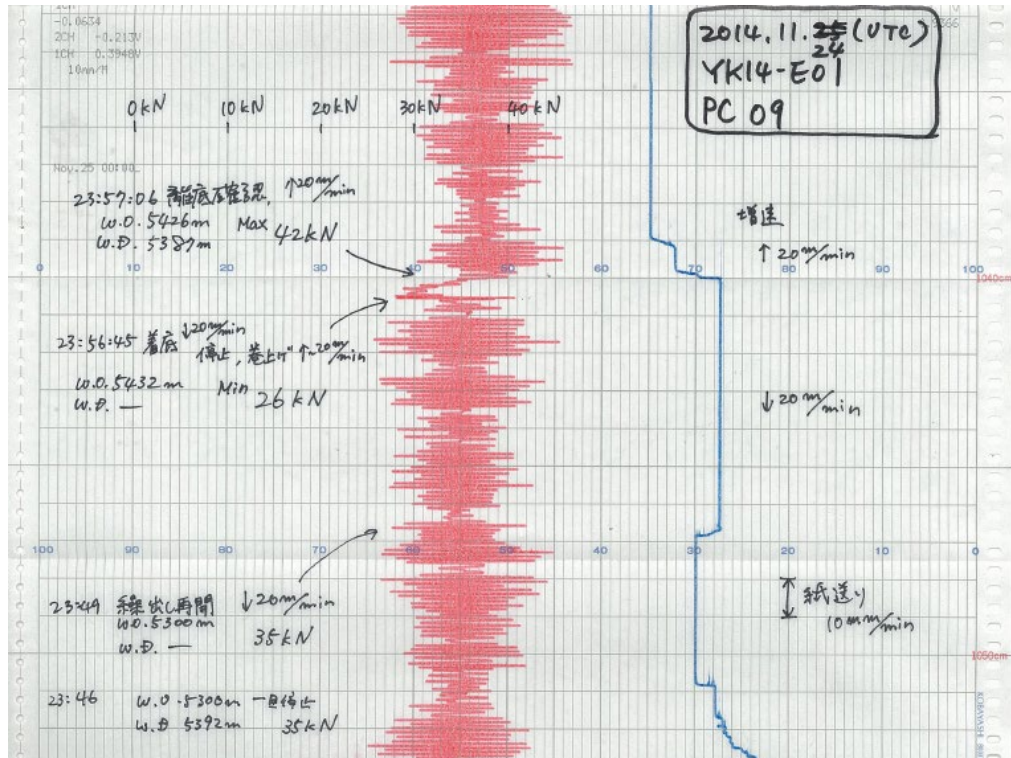 -0.0634
2CH -0.213V
1CH 0.3948V
10mm/M
366
2014.11.25 (UTC)
24
YK14-E01
PC 09
0kN 10kN 20kN 30kN 40kN
Nov.25 00:00
23:57:06 離底確認, ↑20m/min
W.O. 5426m Max 42kN
W.D. 5387m
増速
↑20m/min
0 10 20 30 40 50 60 70 80 90 100
1040cm
23:56:45 着底 ↓20m/min
停止, 巻上げ ↑~20m/min
W.O. 5432m Min 26kN
W.D. —
↓20m/min
100 90 80 70 60 50 40 30 20 10 0
23:49 繰出し再開 ↓20m/min
W.O. 5300m 35kN
W.D. —
紙送り
10mm/min
1050cm
23:46 W.O. 5300m 一旦停止
W.D 5392m 35kN